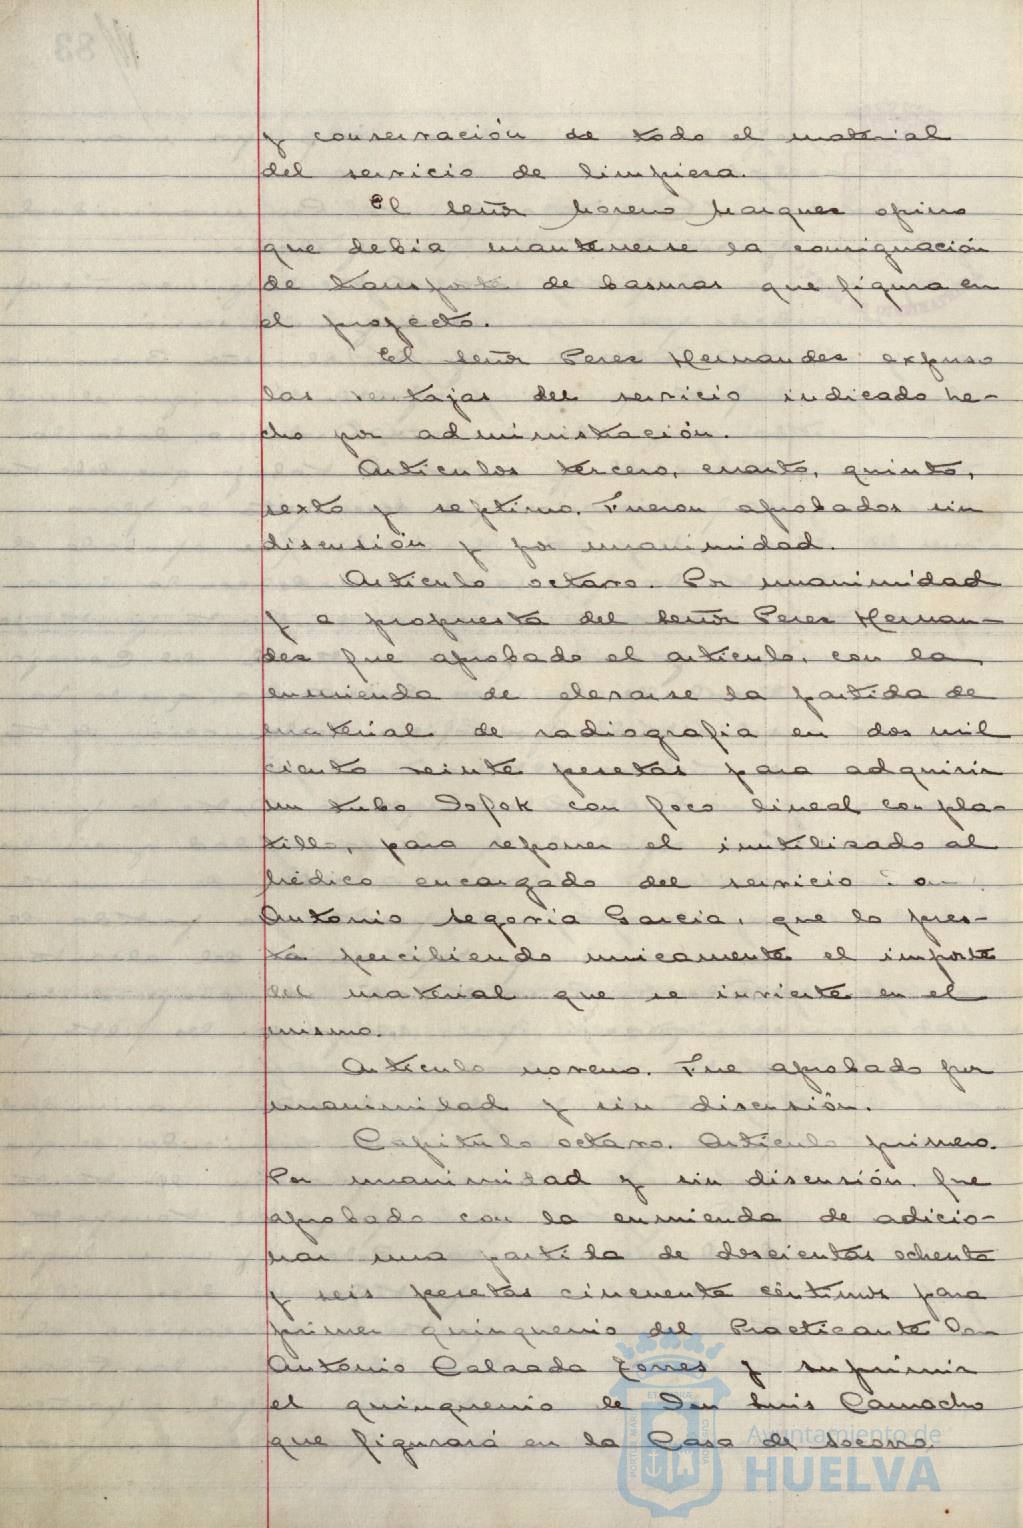 y conservación de todo el material
del servicio de limpieza.
El Señor Moreno Marquez opino
que debia mantenerse la consignación
de transporte de basuras que figura en
el proyecto.
El Señor Perez Hernandez expuso
las ventajas del servicio indicado he-
cho por administración.
Articulos tercero, cuarto, quinto,
sexto y septimo. Fueron aprobados sin
discusión y por unanimidad.
Articulo octavo. Por unanimidad
y a propuesta del Señor Perez Hernan-
dez fue aprobado el articulo, con la
enmienda de elevarse la partida de
material de radiografia en dos mil
ciento veinte pesetas para adquirir
un tubo con foco lineal con pla-
tillo, para reponer el inutilizado al
Médico encargado del servicio Don
Antonio Segovia Garcia, que lo pres-
ta percibiendo unicamente el importe
del material que se invierte en el
mismo.
Articulo noveno. Fue aprobado por
unanimidad y sin discusión.
Capitulo octavo. Articulo primero.
Por unanimidad y sin discusión fue
aprobado con la enmienda de adicio-
nar una partida de doscientas ochenta
y seis pesetas cincuenta céntimos para
primer quinquenio del Practicante Don
Antonio Calzada Torres y suprimir
el quinquenio de Don Luis Camacho
que figurará en la Casa de Socorro.
Ayuntamiento de
HUELVA